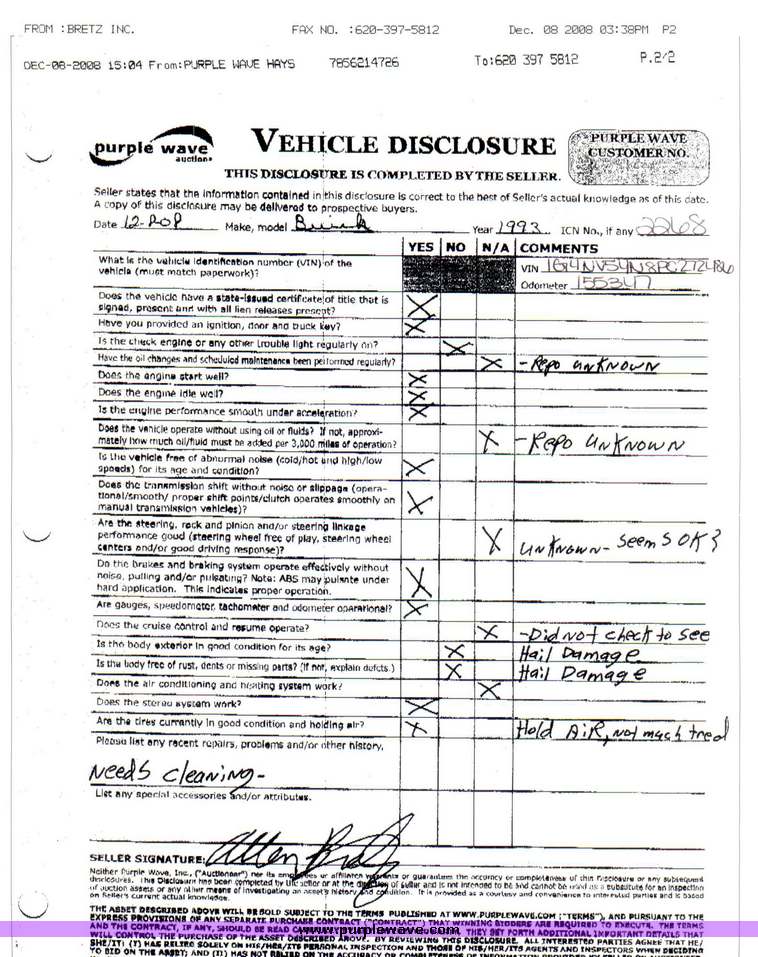 FROM :BRETZ INC. FAX NO. :620-397-5812 Dec. 08 2008 03:38PM P2
DEC-08-2008 15:04 From:PURPLE WAVE HAYS 7856214726 To:620 397 5812 P.2/2
purple wave
auction
VEHICLE DISCLOSURE
PURPLE WAVE
CUSTOMER NO.
THIS DISCLOSURE IS COMPLETED BY THE SELLER.
Seller states that the information contained in this disclosure is correct to the best of Seller's actual knowledge as of this date.
A copy of this disclosure may be delivered to prospective buyers.
Date Make, model Buick Year 1993 ICN No., if any 2268
YES NO N/A COMMENTS
What is the vehicle identification number (VIN) of the
vehicle (must match paperwork)?
VIN 1G4NV54N8PC272486
Odometer 155347
Does the vehicle have a state-issued certificate of title that is
signed, present and with all lien releases present? X
Have you provided an ignition, door and truck key? X
Is the check engine or any other trouble light regularly on? X
Have the oil changes and scheduled maintenance been performed regularly? X -Repo UNKNOWN
Does the engine start well? X
Does the engine idle well? X
Is the engine performance smooth under acceleration? X
Does the vehicle operate without using oil or fluids? If not, approxi-
mately how much oil/fluid must be added per 3,000 miles of operation? X -Repo UNKNOWN
Is the vehicle free of abnormal noise (cold/hot and high/low
speeds) for its age and condition? X
Does the transmission shift without noise or slippage (opera-
tional/smooth/ proper shift points/clutch operates smoothly on
manual transmission vehicles)? X
Are the steering, rack and pinion and/or steering linkage
performance good (steering wheel free of play, steering wheel
centers and/or good driving response)? X UNKNOWN- Seems OK?
Do the brakes and braking system operate effectively without
noise, pulling and/or pulsating? Note: ABS may pulsate under
hard application. This indicates proper operation. X
Are gauges, speedometer, tachometer and odometer operational? X
Does the cruise control and resume operate? X -Did not check to see
Is the body exterior in good condition for its age? X Hail Damage
Is the body free of rust, dents or missing parts? (If not, explain defcts.) X Hail Damage
Does the air conditioning and heating system work? X
Does the stereo system work? X
Are the tires currently in good condition and holding air? X Hold AiR, not much tread
Please list any recent repairs, problems and/or other history.
Needs cleaning-
List any special accessories and/or attributes.
SELLER SIGNATURE:
Neither Purple Wave, Inc., ("Auctioneer") nor its employees or affiliates warrants or guarantees the accuracy or completeness of this Disclosure or any subsequent
disclosures. This Disclosure has been completed by the seller or at the direction of seller and is not intended to be and cannot be used as a substitute for an inspection
of auction assets or any other means of investigating an asset's history and condition. It is provided as a courtesy and convenience to interested parties and is based
on Seller's current actual knowledge.
THE ASSET DESCRIBED ABOVE WILL BE SOLD SUBJECT TO THE TERMS PUBLISHED AT WWW.PURPLEWAVE.COM ("TERMS"), AND PURSUANT TO THE
EXPRESS PROVISIONS OF ANY SEPARATE PURCHASE CONTRACT ("CONTRACT") THAT WINNING BIDDERS ARE REQUIRED TO EXECUTE. THE TERMS
AND THE CONTRACT, IF ANY, SHOULD BE READ THEY SET FORTH ADDITIONAL IMPORTANT DETAILS THAT
www.purplewave.com
WILL CONTROL THE PURCHASE OF THE ASSET DESCRIBED ABOVE. BY REVIEWING THIS DISCLOSURE, ALL INTERESTED PARTIES AGREE THAT HE/
SHE/IT: (I) HAS RELIED SOLELY ON HIS/HER/ITS PERSONAL INSPECTION AND THOSE OF HIS/HER/ITS AGENTS AND INSPECTORS WHEN DECIDING
TO BID ON THE ASSET; AND (II) HAS NOT RELIED ON THE ACCURACY OR COMPLETENESS OF INFORMATION PROVIDED BY